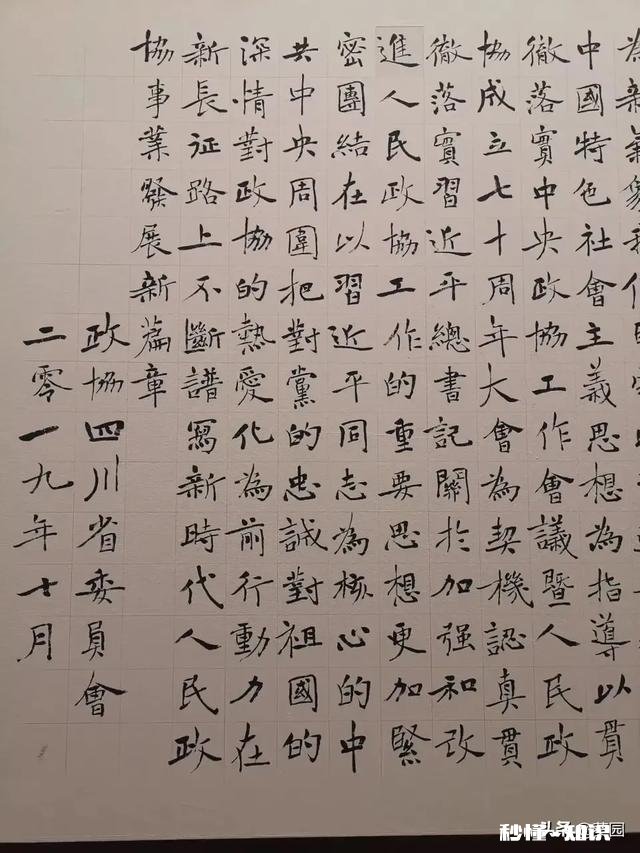 為新
中國特色社會主義思想為指導以貫
徹落實中央政協工作會議暨人民政
協成立七十周年大會為契機認真貫
徹落實習近平總書記關於加强和改
進人民政協工作的重要思想更加緊
密團結在以習近平同志為核心的中
共中央周圍把對黨的忠誠對祖國的
深情對政協的熱愛化為前行動力在
新長征路上不斷譜寫新時代人民政
協事業發展新篇章
政協四川省委員會
二零一九年七月
秒懂一知识